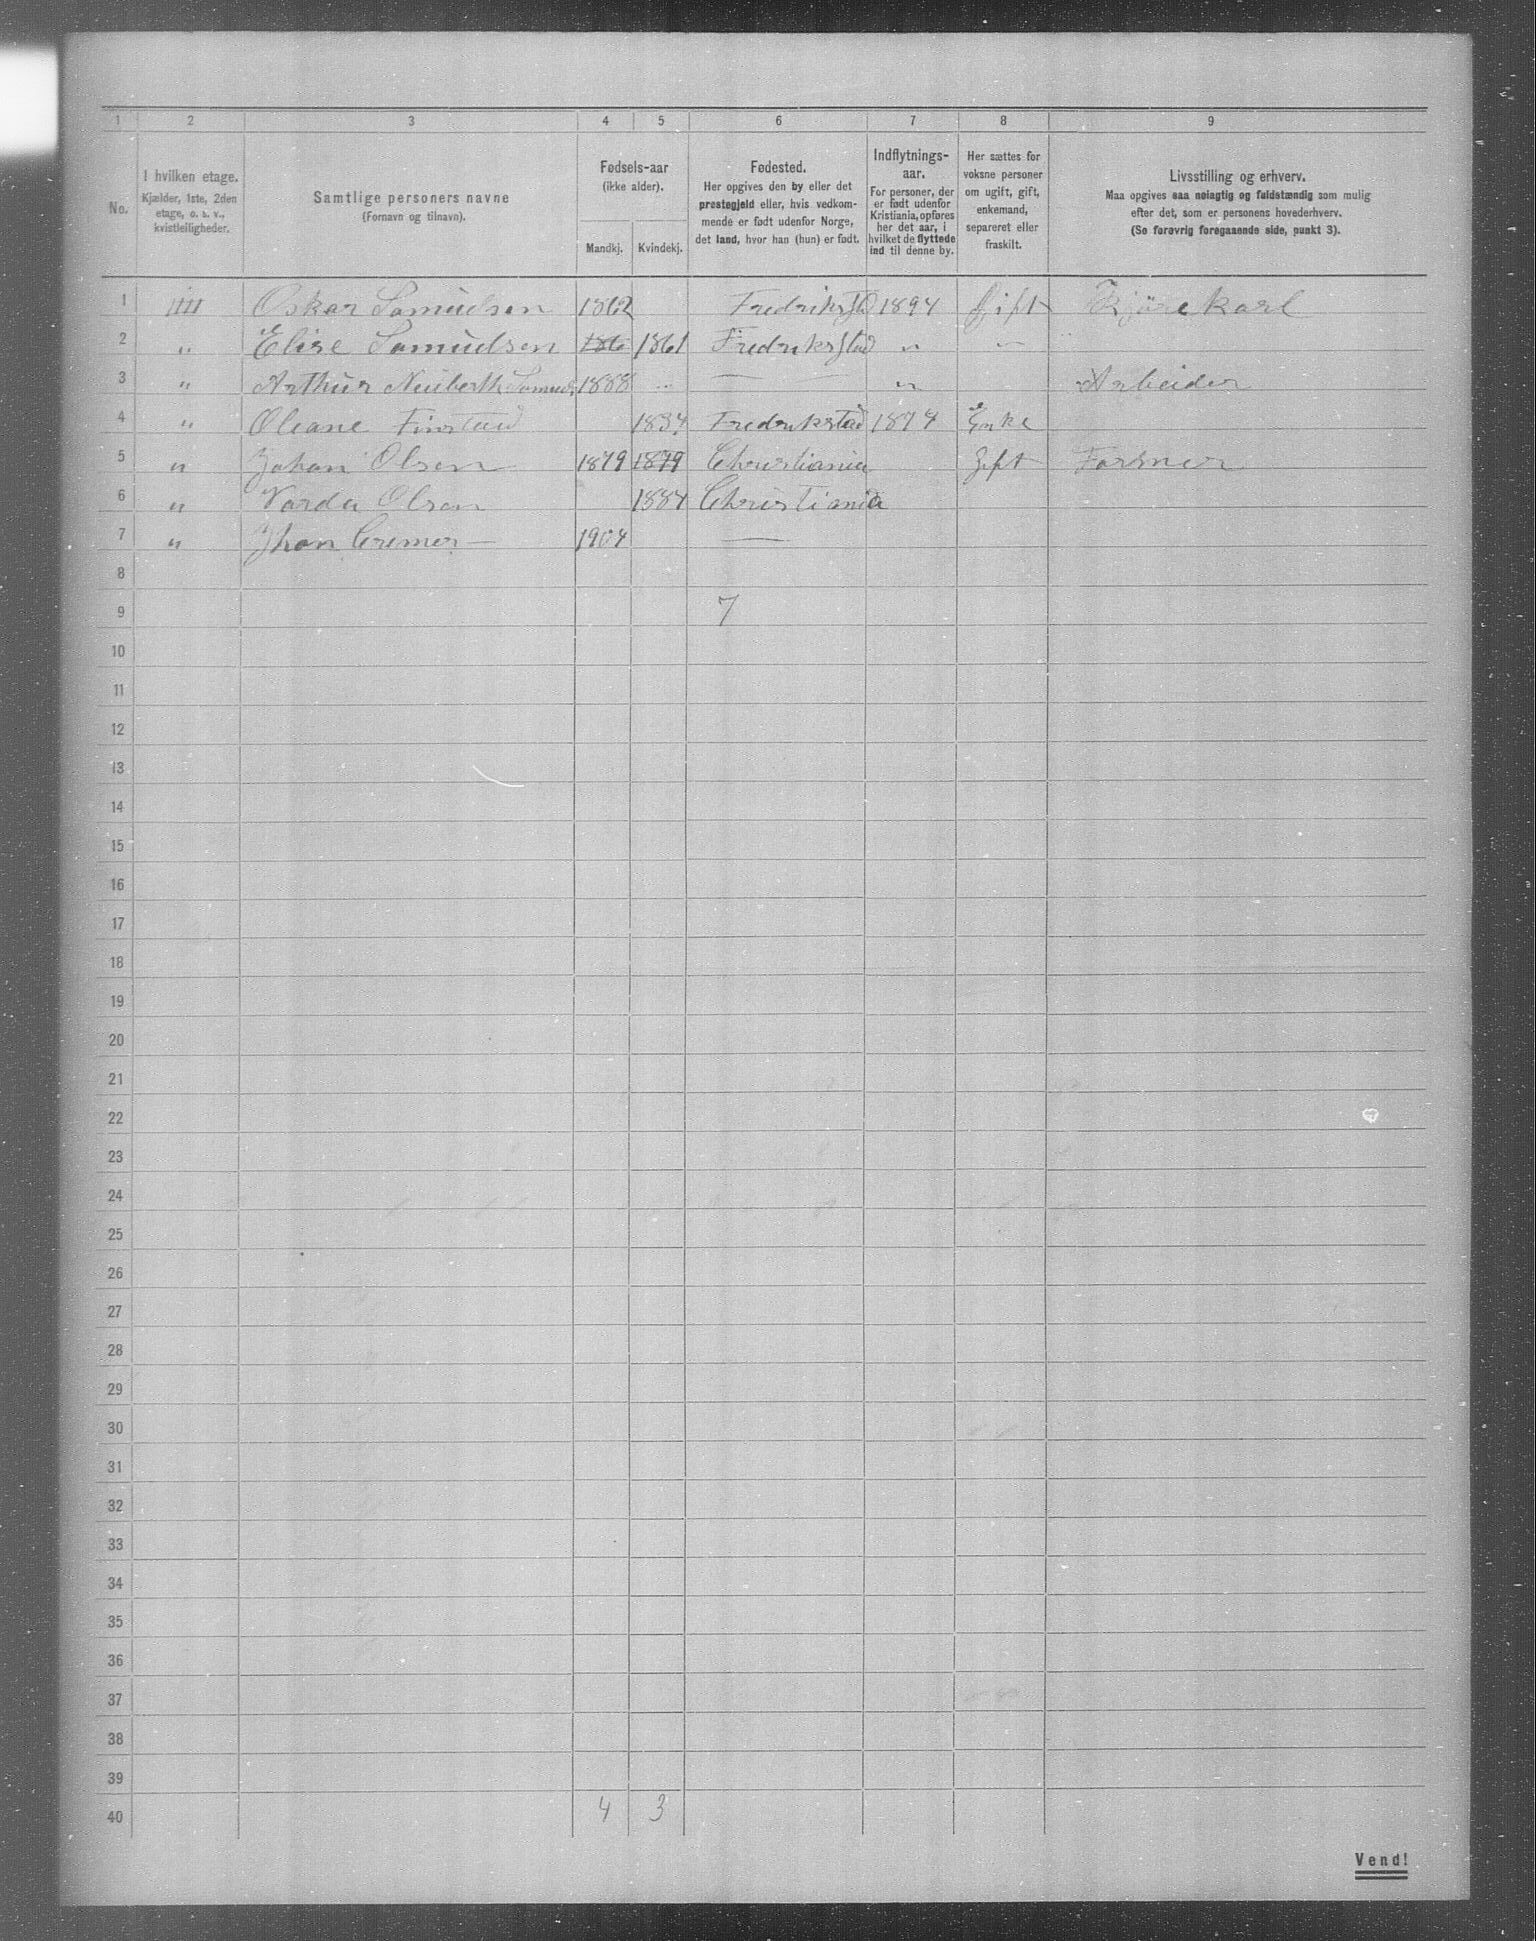 1 2 3 4 5 6 7 8 9
No.
I hvilken etage.
Kjælder, 1ste, 2den
etage, o. s. v.,
kvistleiligheder.
Samtlige personers navne
(Fornavn og tilnavn).
Fødsels-aar
(ikke alder).
Mandkj. Kvindekj.
Fødested.
Her opgives den by eller det
prestegjeld eller, hvis vedkom-
mende er født udenfor Norge,
det land, hvor han (hun) er født.
Indflytnings-
aar.
For personer, der
er født udenfor
Kristiania, opføres
her det aar, i
hvilket de flyttede
ind til denne by.
Her sættes for
voksne personer
om ugift, gift,
enkemand,
separeret eller
fraskilt.
Livsstilling og erhverv.
Maa opgives saa nøiagtig og fuldstændig som mulig
efter det, som er personens hovederhverv.
(Se forøvrig foregaaende side, punkt 3).
1 IIII Oskar Samuelsen 1862 Fredrikstd 1894 Gift Kjørekarl
2 " Elise Samuelsen 186 1861 Fredrikstad " "
3 " Arthur Neuberth Samuels 1888 " — — " Arbeider
4 " Oleane 1834 Fredrikstad 1874 Enke
5 " Johan Olsen 1879 1879 Christiania Gift Former
6 " Olsen 1884 Christiania
7 " Jhon Cremer — 1904 —
8
9 7
10
11
12
13
14
15
16
17
18
19
20
21
22
23
24
25
26
27
28
29
30
31
32
33
34
35
36
37
38
39
40 4 3
Vend!